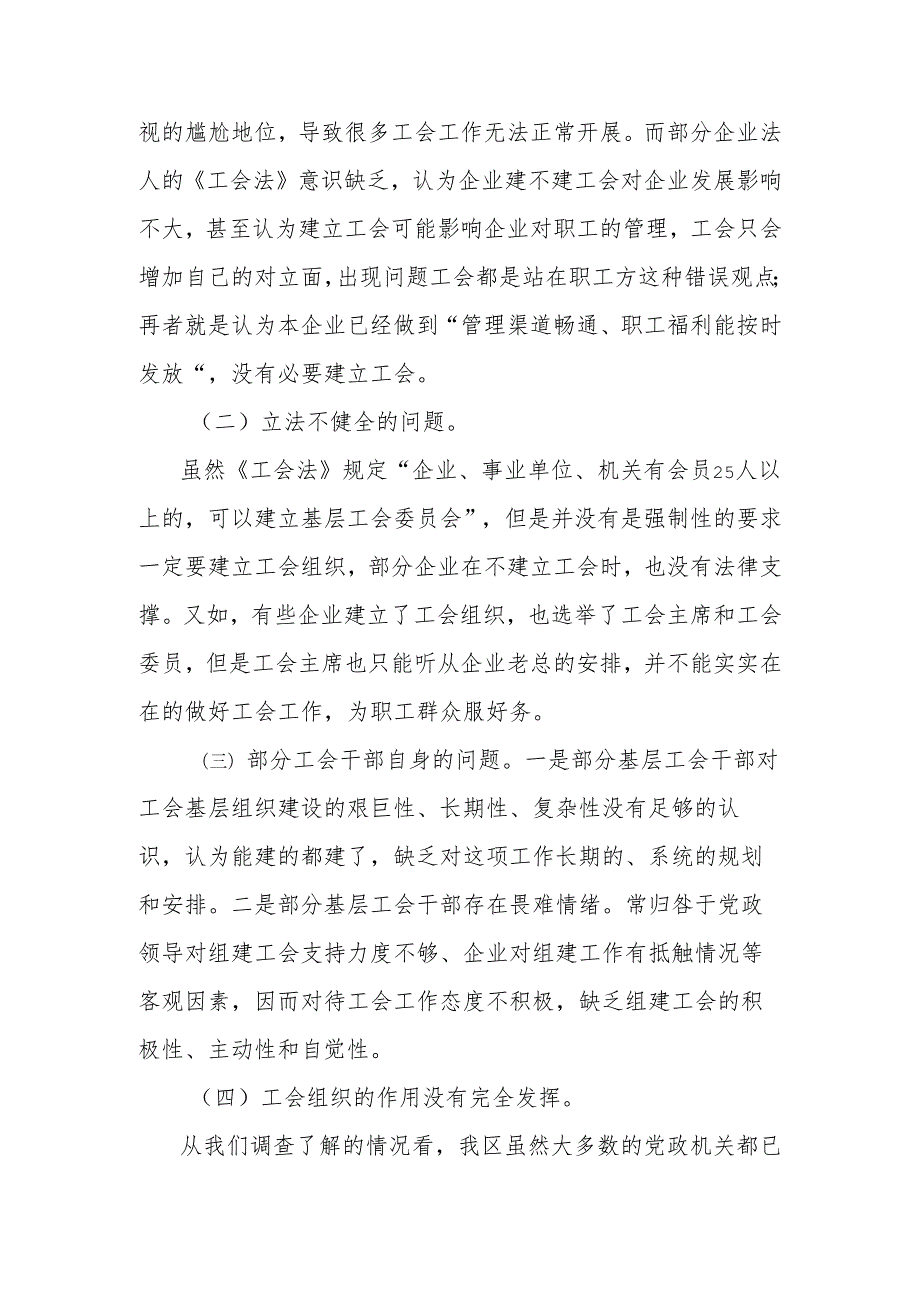 视的尴尬地位，导致很多工会工作无法正常开展。而部分企业法
人的《工会法》意识缺乏，认为企业建不建工会对企业发展影响
不大，甚至认为建立工会可能影响企业对职工的管理，工会只会
增加自己的对立面，出现问题工会都是站在职工方这种错误观点；
再者就是认为本企业已经做到“管理渠道畅通、职工福利能按时
发放“，没有必要建立工会。
（二）立法不健全的问题。
虽然《工会法》规定“企业、事业单位、机关有会员25人以
上的，可以建立基层工会委员会”，但是并没有是强制性的要求
一定要建立工会组织，部分企业在不建立工会时，也没有法律支
撑。又如，有些企业建立了工会组织，也选举了工会主席和工会
委员，但是工会主席也只能听从企业老总的安排，并不能实实在
在的做好工会工作，为职工群众服好务。
㈢ 部分工会干部自身的问题。一是部分基层工会干部对
工会基层组织建设的艰巨性、长期性、复杂性没有足够的认
识，认为能建的都建了，缺乏对这项工作长期的、系统的规划
和安排。二是部分基层工会干部存在畏难情绪。常归咎于党政
领导对组建工会支持力度不够、企业对组建工作有抵触情况等
客观因素，因而对待工会工作态度不积极，缺乏组建工会的积
极性、主动性和自觉性。
（四）工会组织的作用没有完全发挥。
从我们调查了解的情况看，我区虽然大多数的党政机关都已